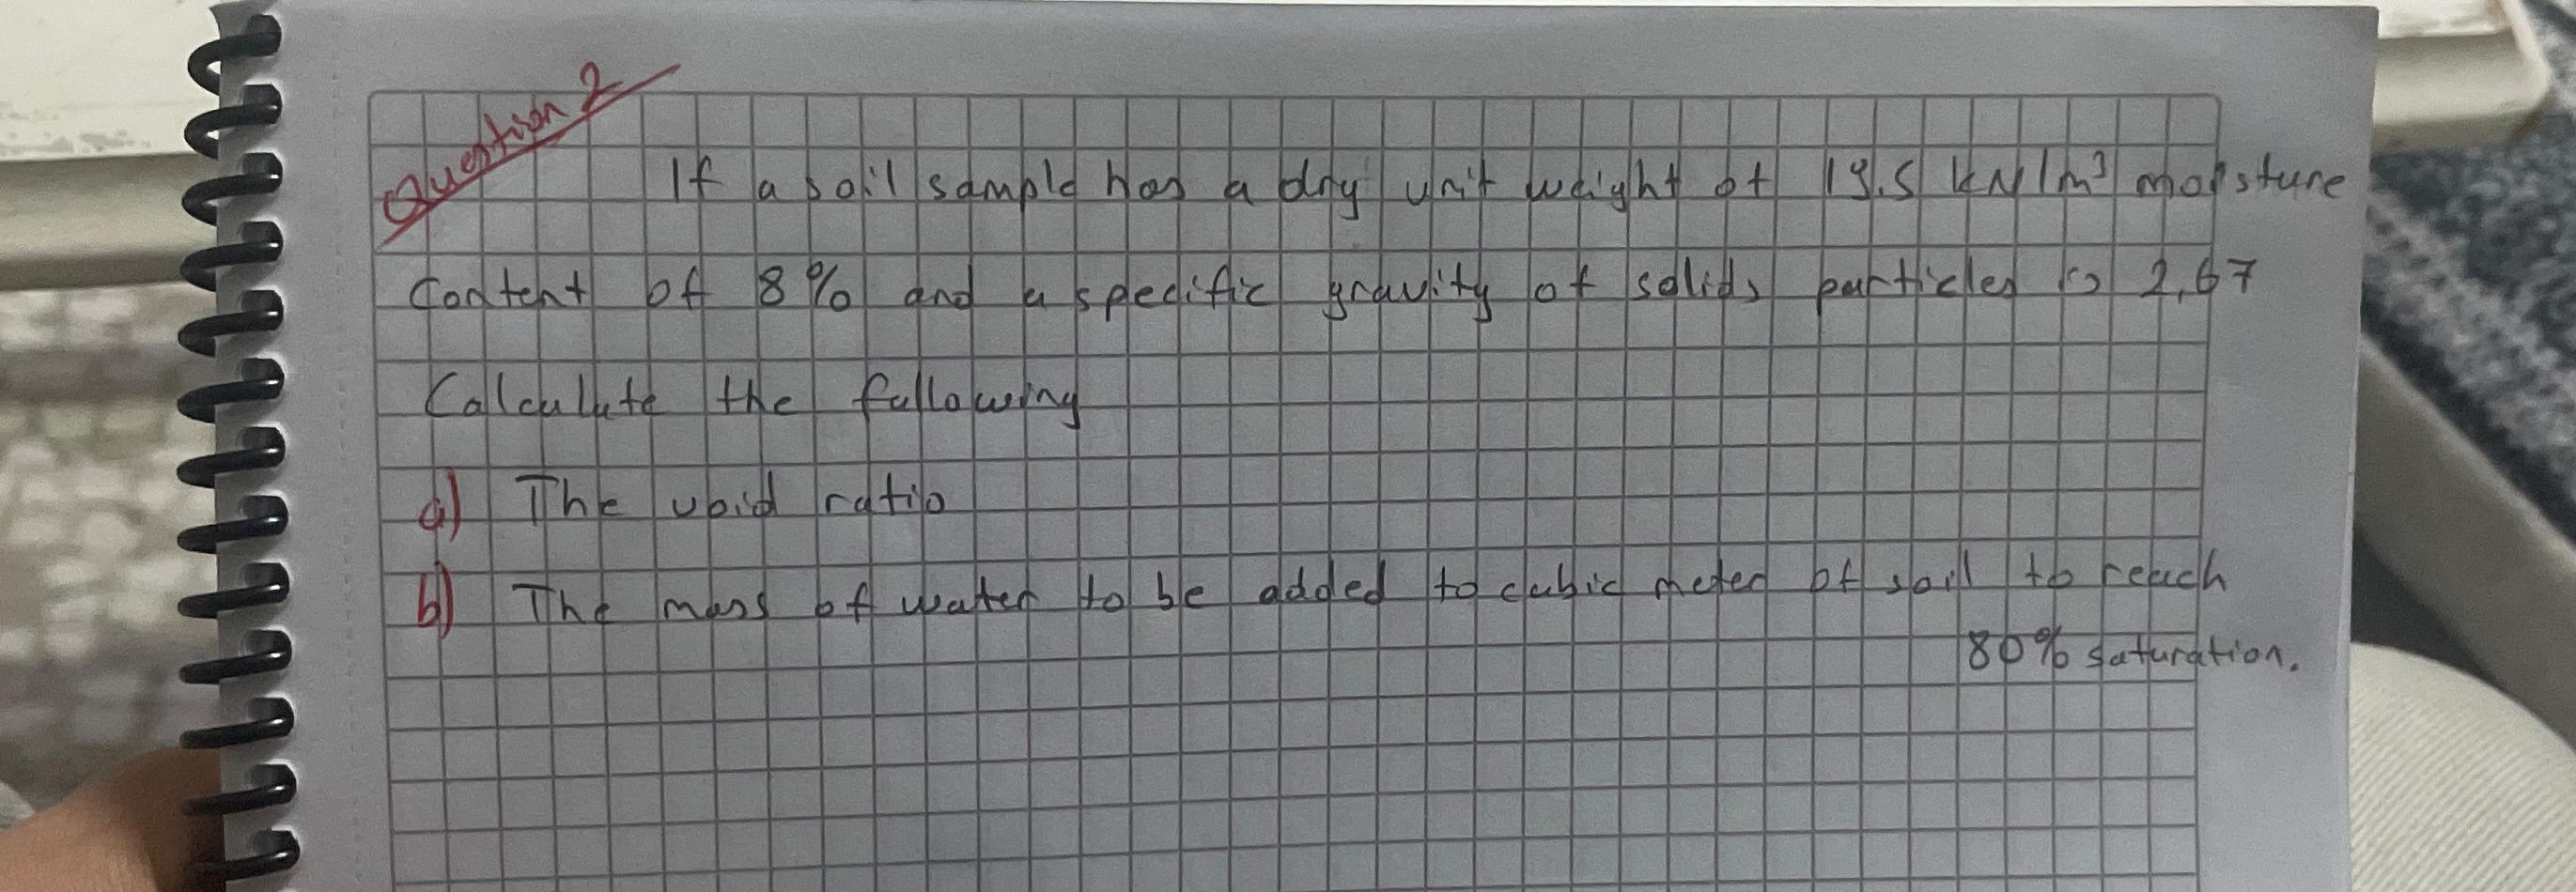 Question 2
If a soil sample has a dry unit weight of 19.5 kN/m³ moisture
Content of 8% and a specific gravity of solids particles is 2,67
Calculate the following
a) The void ratio
b) The mass of water to be added to cubic meter of soil to reach
80% saturation.